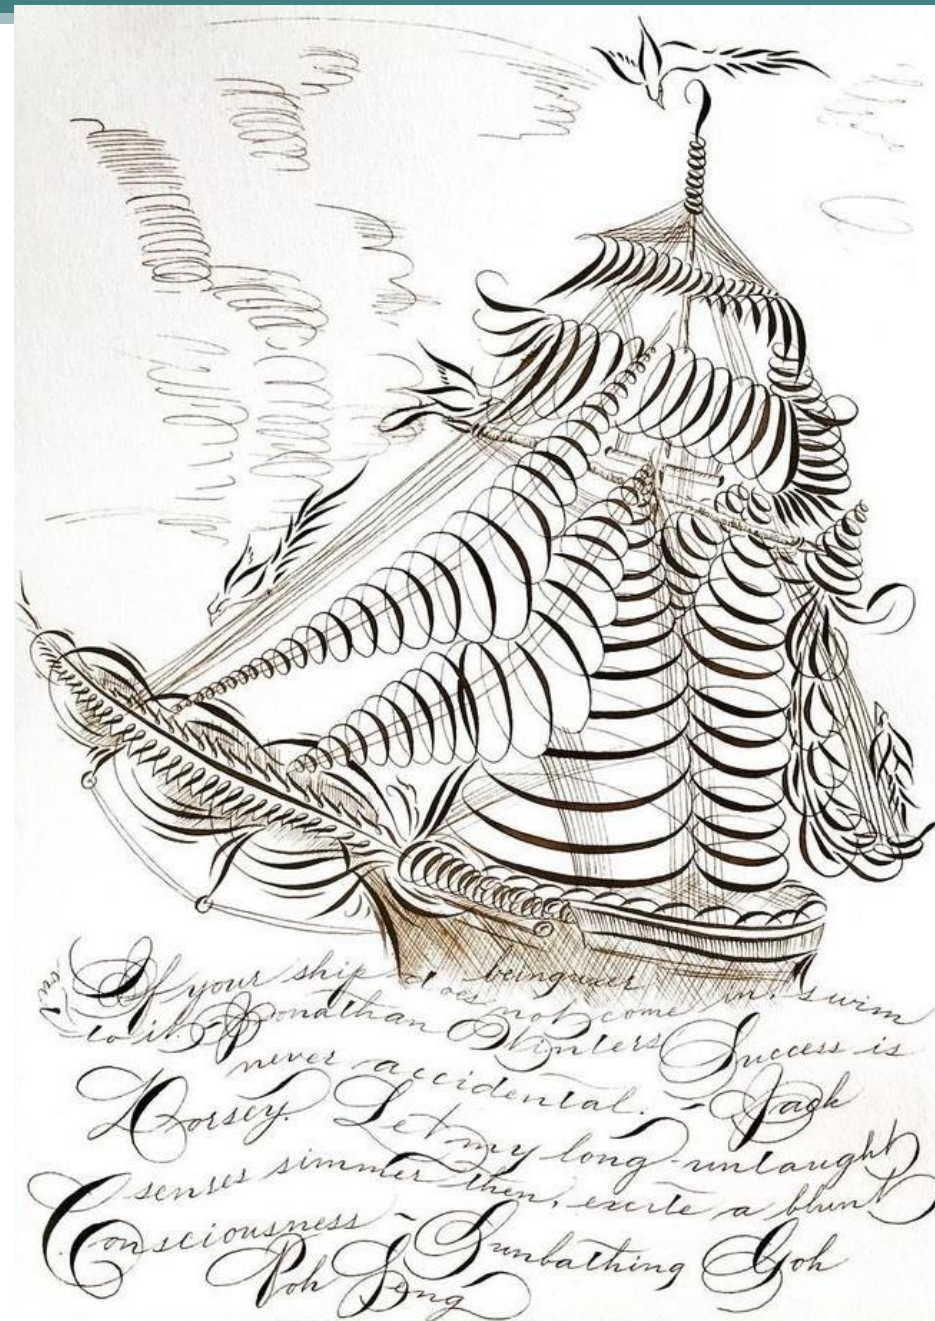 If your ship does not come in, swim
to it. - Jonathan Winters Success is
never accidental. - Jack
Dorsey. Let my long-untaught
senses simmer then, excite a blunt
Consciousness - Sunbathing Goh
Poh Seng